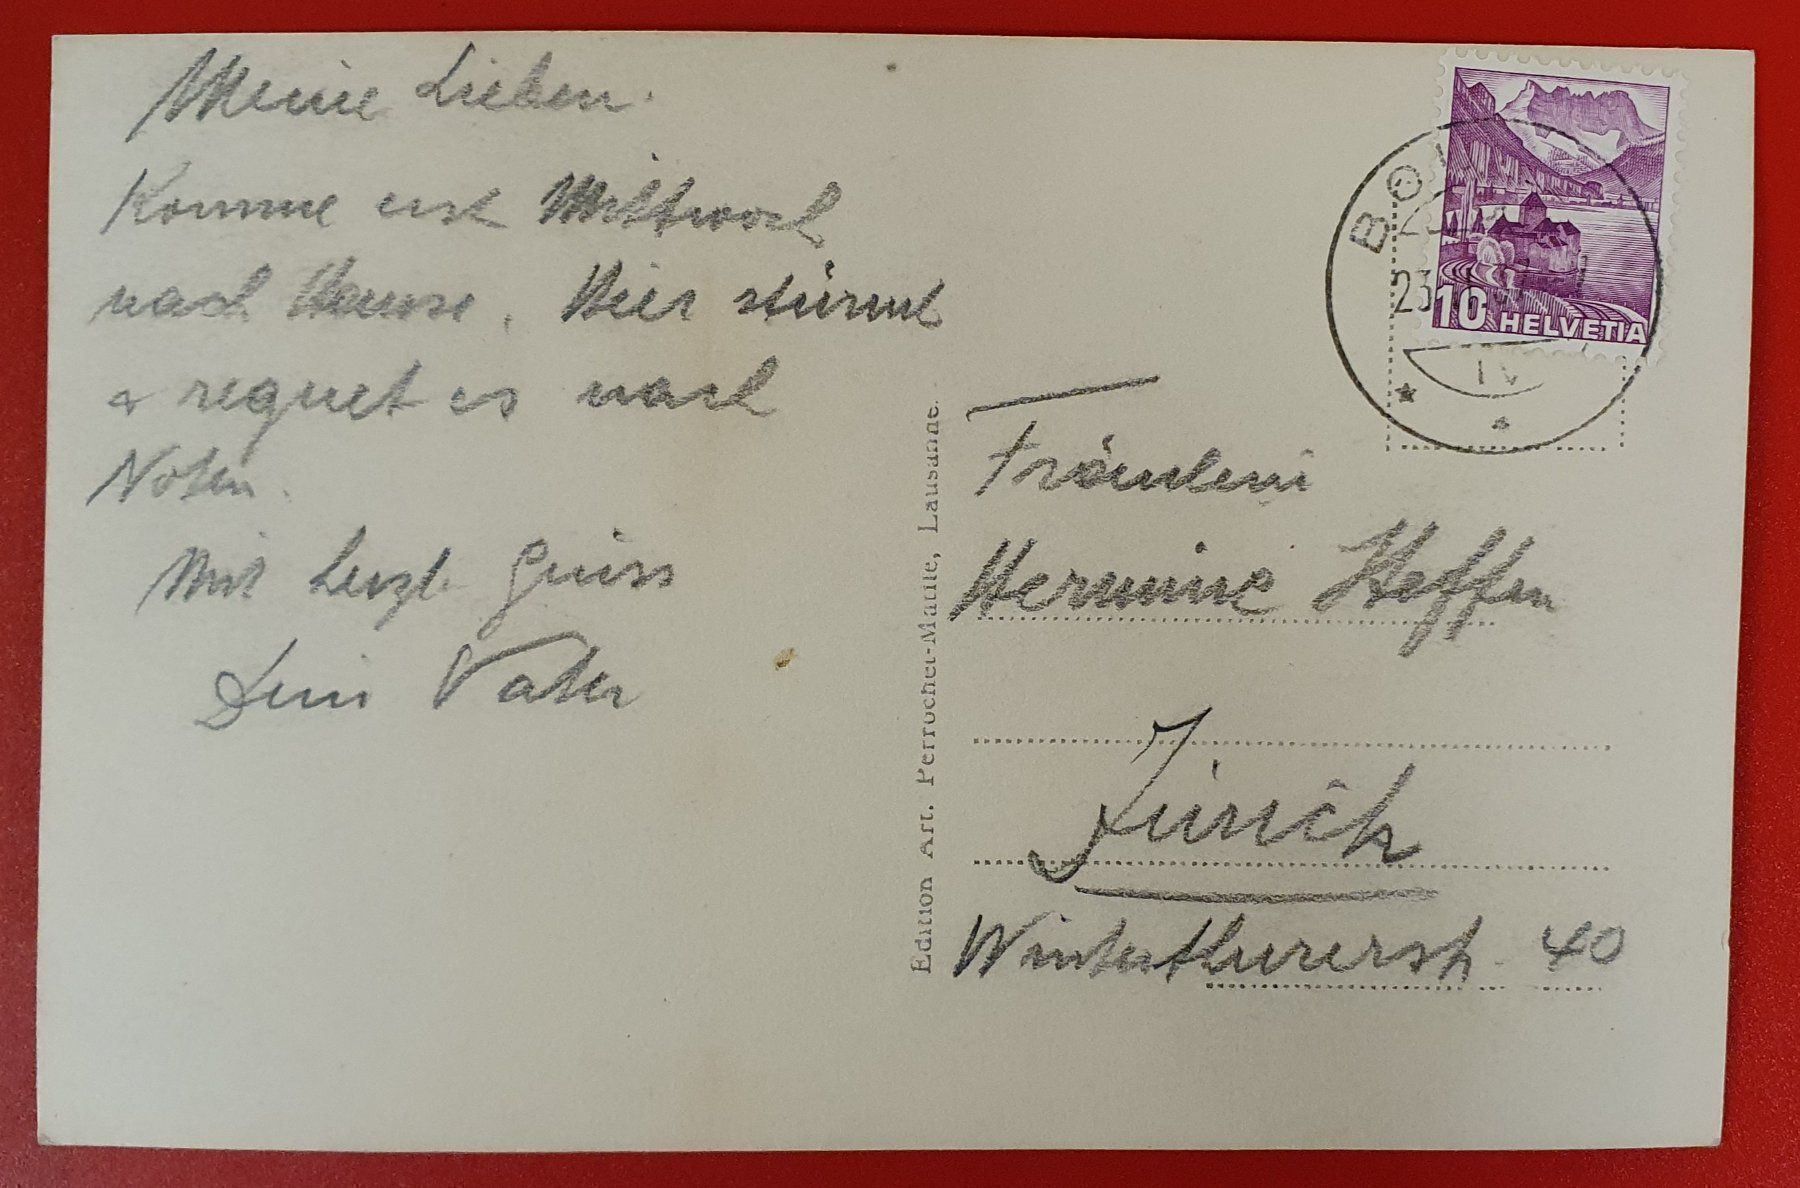 Meine Lieben.
Komme erst Mittwoch
nach Hause. Hier stürmt
& regnet es nach
Noten.
Mit herzl. Gruss
Dein Vater
Edition Art. Perrochet-Matile, Lausanne.
10 HELVETIA
23
IV
Fräulein
Hermine
Zürich
Winterthurerstr. 40